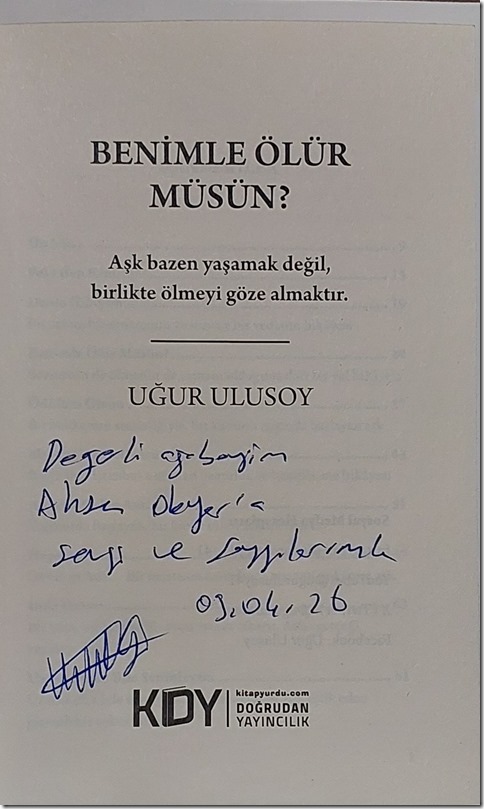 BENİMLE ÖLÜR
MÜSÜN?
Aşk bazen yaşamak değil,
birlikte ölmeyi göze almaktır.
UĞUR ULUSOY
Değerli ağabeyim
Ahsen
sevgi ve saygılarımla
09.04.26
Sosyal Medya
KDY
kitapyurdu.com
DOĞRUDAN
YAYINCILIK